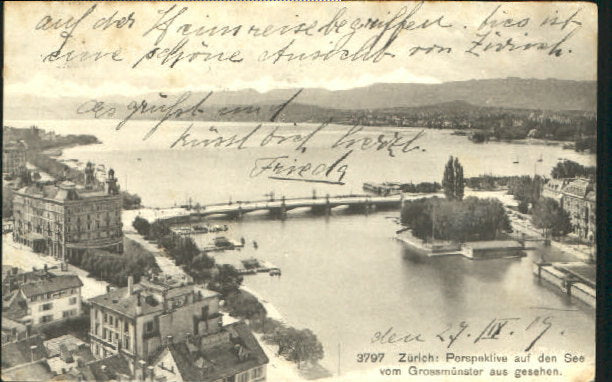 auf der Heimreise begriffen. Dies ist
eine schöne Ansicht von Zürich.
es grüsst und
küsst dich herzl.
Frieda
den 27. IX. 19.
3797 Zürich: Perspektive auf den See
vom Grossmünster aus gesehen.